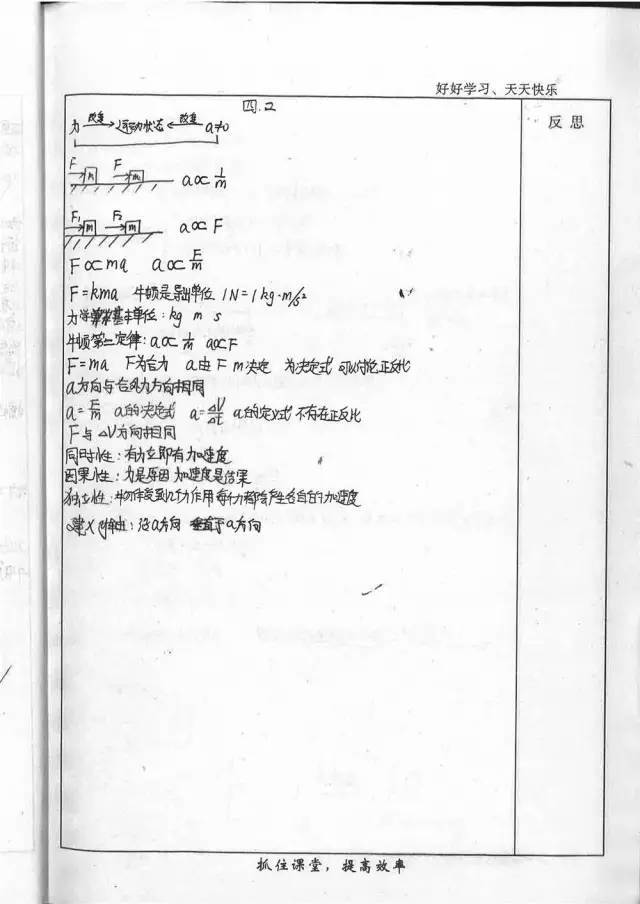 好好学习、天天快乐
四.2
反思
力 改变 运动状态 改变 a≠0
F m F m a∝1/m
F₁ m F₂ m a∝F
F∝ma a∝F/m
F=kma 牛顿是导出单位 1N=1kg·m/s²
力学 基本单位:kg m s
牛顿第二定律:a∝1/m a∝F
F=ma F为合力 a由F m决定 为决定式 可以讨论正反比
a方向与合外力方向相同
a=F/m a的决定式 a=ΔV/Δt a的定义式 不存在正反比
F与ΔV方向相同
同时性:有力立即有加速度
因果性:力是原因 加速度是结果
独立性:物体受到几个力作用 每个力都会产生各自的加速度
建x y轴:沿a方向 垂直于a方向
抓住课堂,提高效率